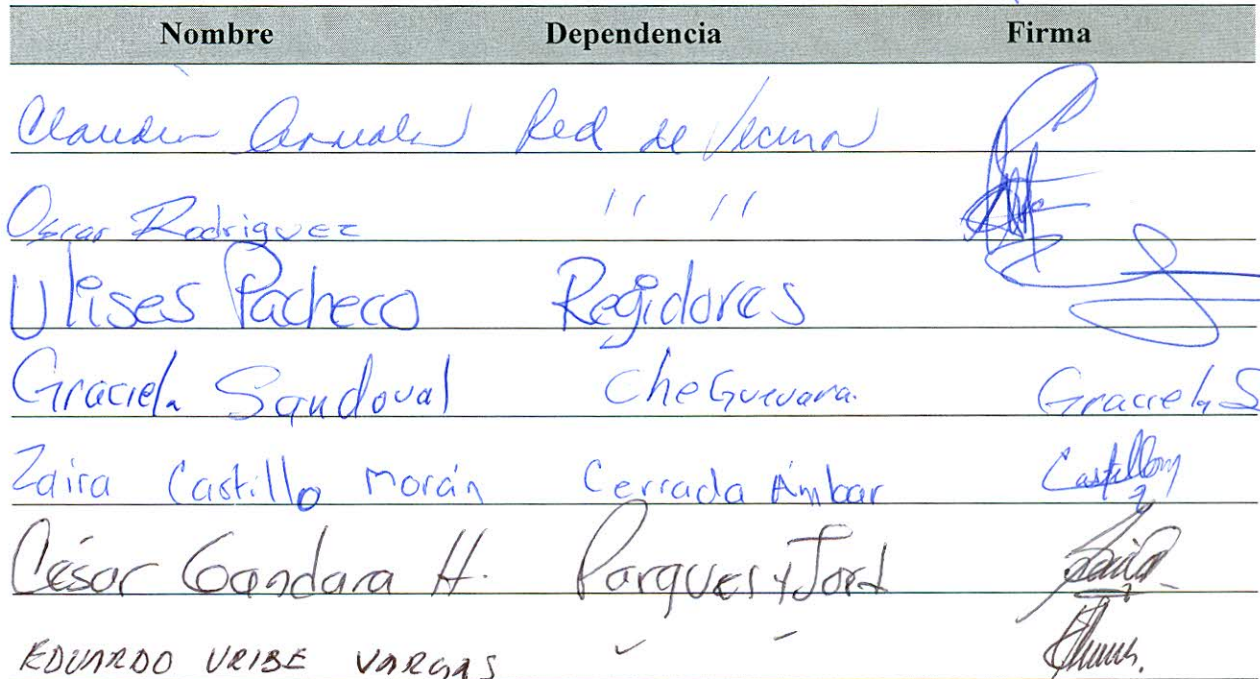 Nombre Dependencia Firma
Claudia Red de Vecinos
Oscar Rodriguez " "
Ulises Pacheco Regidores
Graciela Sandoval Che Guevara. Graciela S
Zaira Castillo Morán Cerrada Ámbar
César Gandara H. Parques y Jard
EDUARDO URIBE VARGAS " "